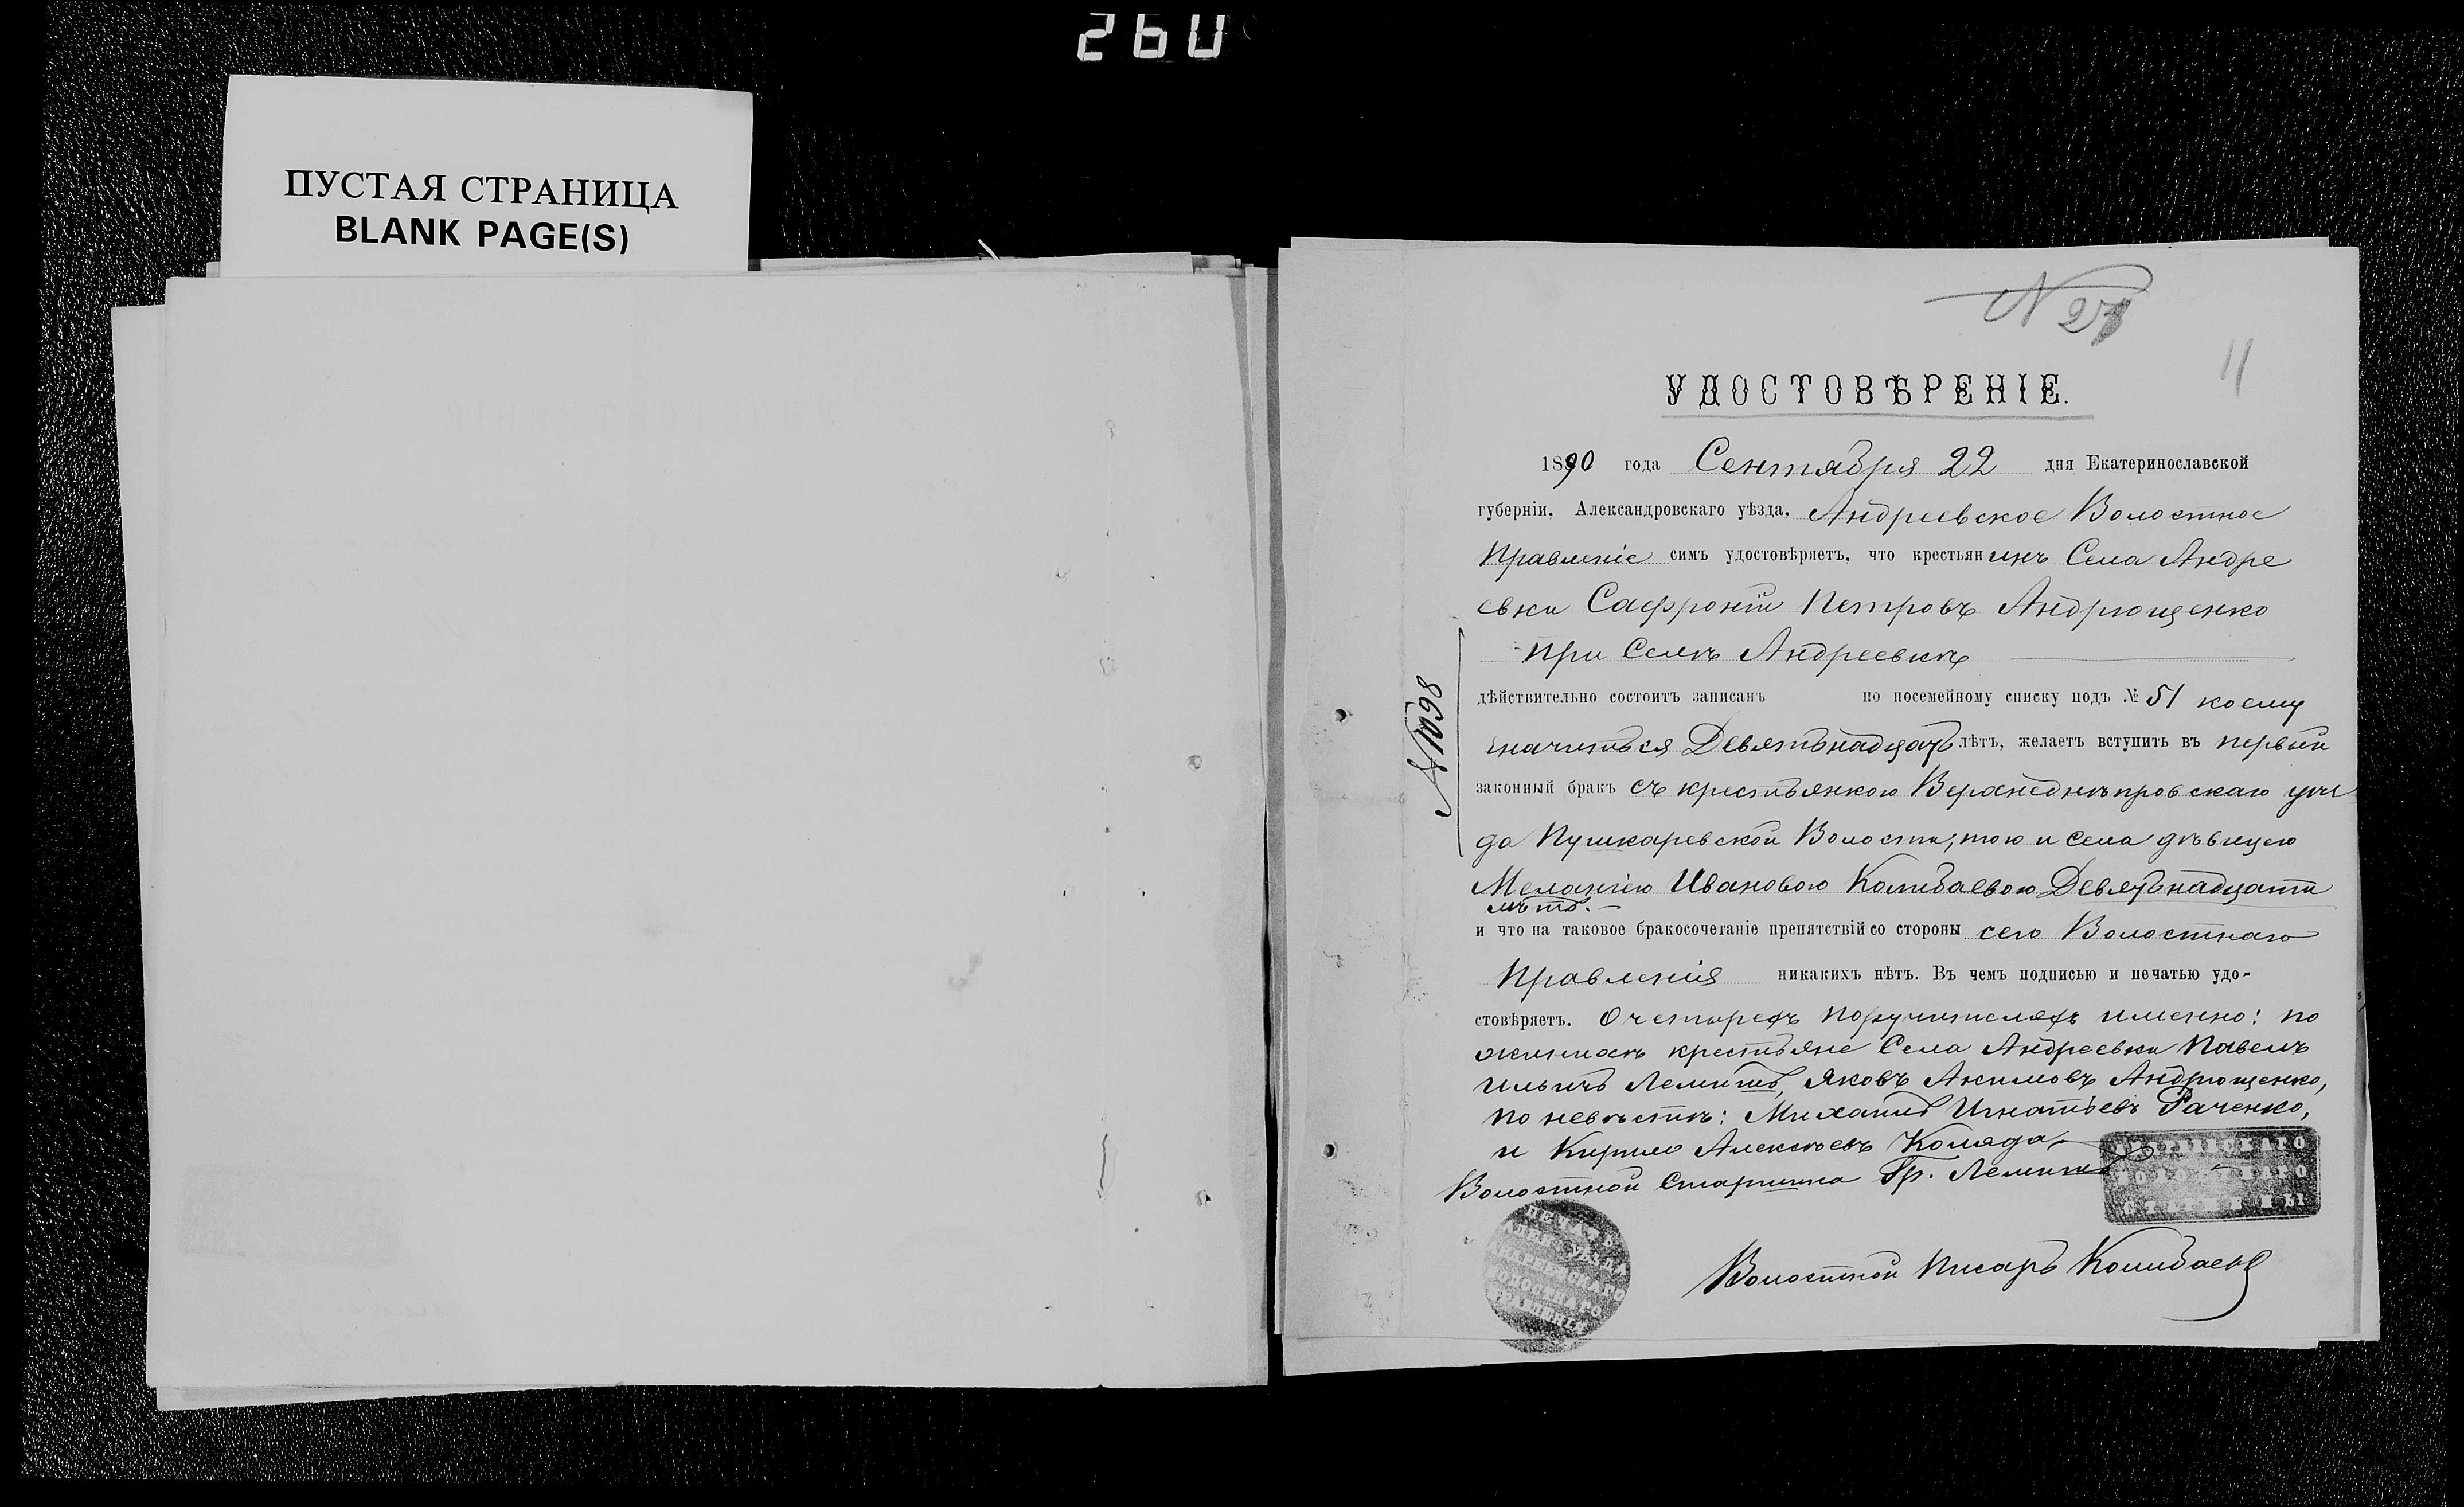 260
ПУСТАЯ СТРАНИЦА
BLANK PAGE(S)
N 27
11
УДОСТОВѢРЕНІЕ.
1890 года Сентября 22 дня Екатеринославской
губерніи, Александровскаго уѣзда, Андреевское Волостное
Правленіе симъ удостовѣряетъ, что крестьянинъ Села Андре
евки Сафроній Петровъ Андрющенко
При Селѣ Андреевкѣ
дѣйствительно состоитъ записанъ по посемейному списку подъ № 51 коему
значиться Девятьнадцать лѣтъ, желаетъ вступить въ первый
законный бракъ съ крестьянкою Верхнеднѣпровскаго уѣз
да Пушкаревской Волости, тою и села дѣвицею
Меланіею Ивановою Колибаевою Девятьнадцати
лѣтъ.
и что на таковое бракосочетаніе препятствій со стороны сего Волостнаго
Правленія никакихъ нѣтъ. Въ чемъ подписью и печатью удо-
стовѣряетъ. О четырехъ поручителяхъ именно: по
женихѣ крестьяне Села Андреевки Павелъ
Ильичъ Лемишъ, Яковъ Акимовъ Андрющенко,
по невѣстѣ: Михаилъ Игнатьевъ Раченко,
и Кирило Алексѣевъ Коляда
Волостной Старшина Гр. Лемишъ
Волостной Писарь Колибаевъ
N 1098
ПЕЧАТЬ
АЛЕК. УѢЗДА
АНДРЕЕВСКАГО
ВОЛОСТНАГО
ПРАВЛЕНІЯ